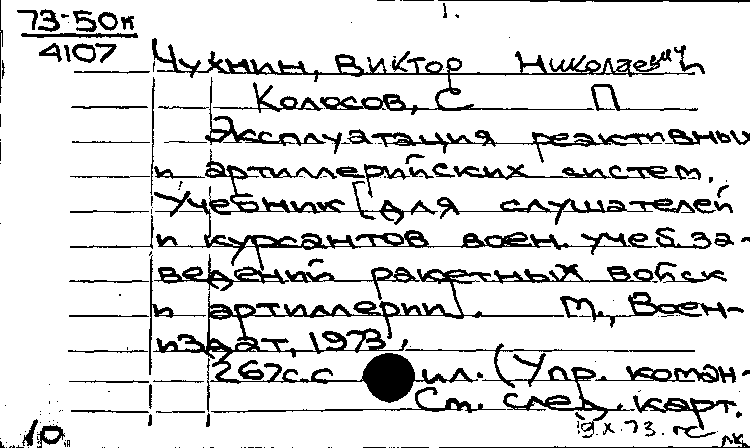 1.
73-50к
4107
Чухнин, Виктор Николаевич
Колосов, С П
Эксплуатация реактивных
и артиллерийских систем.
Учебник [для слушателей
и курсантов воен. учеб. за-
ведений ракетных войск
и артиллерии]. М., Воен-
издат, 1973,
267с.с ил. (Упр. коман-
См. след. карт.
10
9 X.73. лк